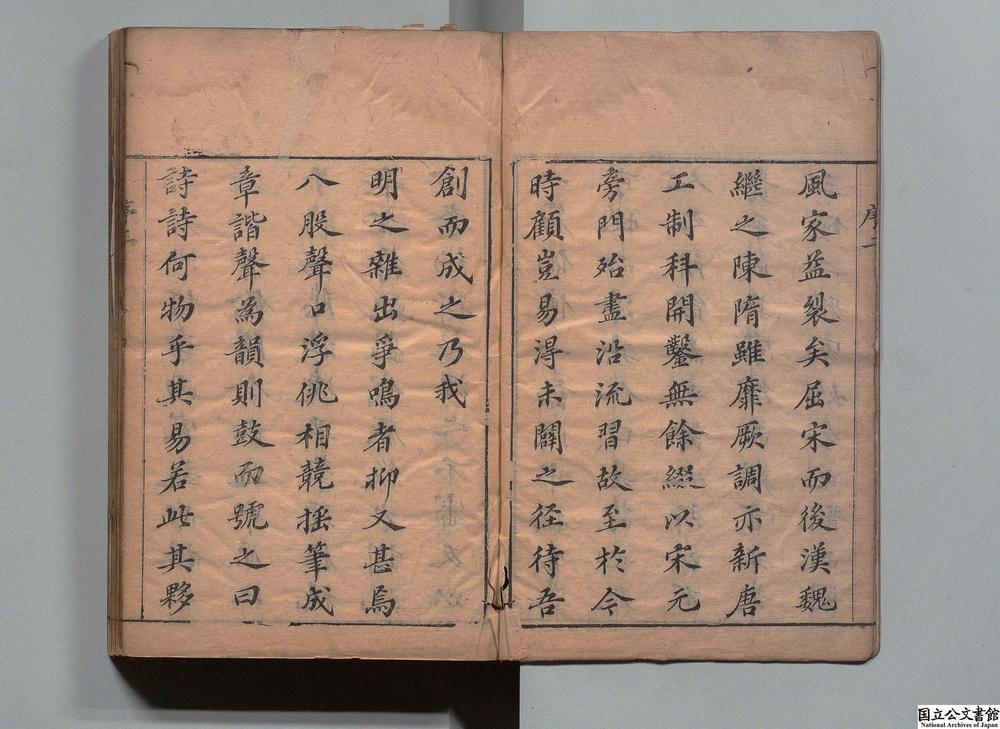 風家益裂矣屈宋而後漢魏
繼之陳隋雖靡厥調亦新唐
工制科開鑿無餘綴以宋元
旁門殆盡沿流習故至於今
時顧豈易淂未闢之径待吾
創而成之乃我
明之雜出爭鳴者抑又甚焉
八股聲口浮佻相競揺筆成
章諧聲為韻則鼓而號之曰
詩詩何物乎其易若此其夥
序二
国立公文書館
National Archives of Japan